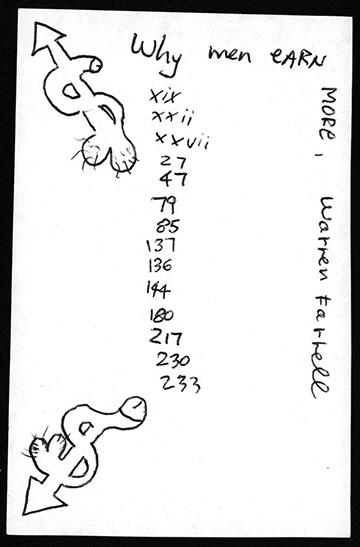 Why men EARN
MORE, Warren Farrell
xix
xxii
xxvii
27
47
79
85
137
136
144
180
217
230
233